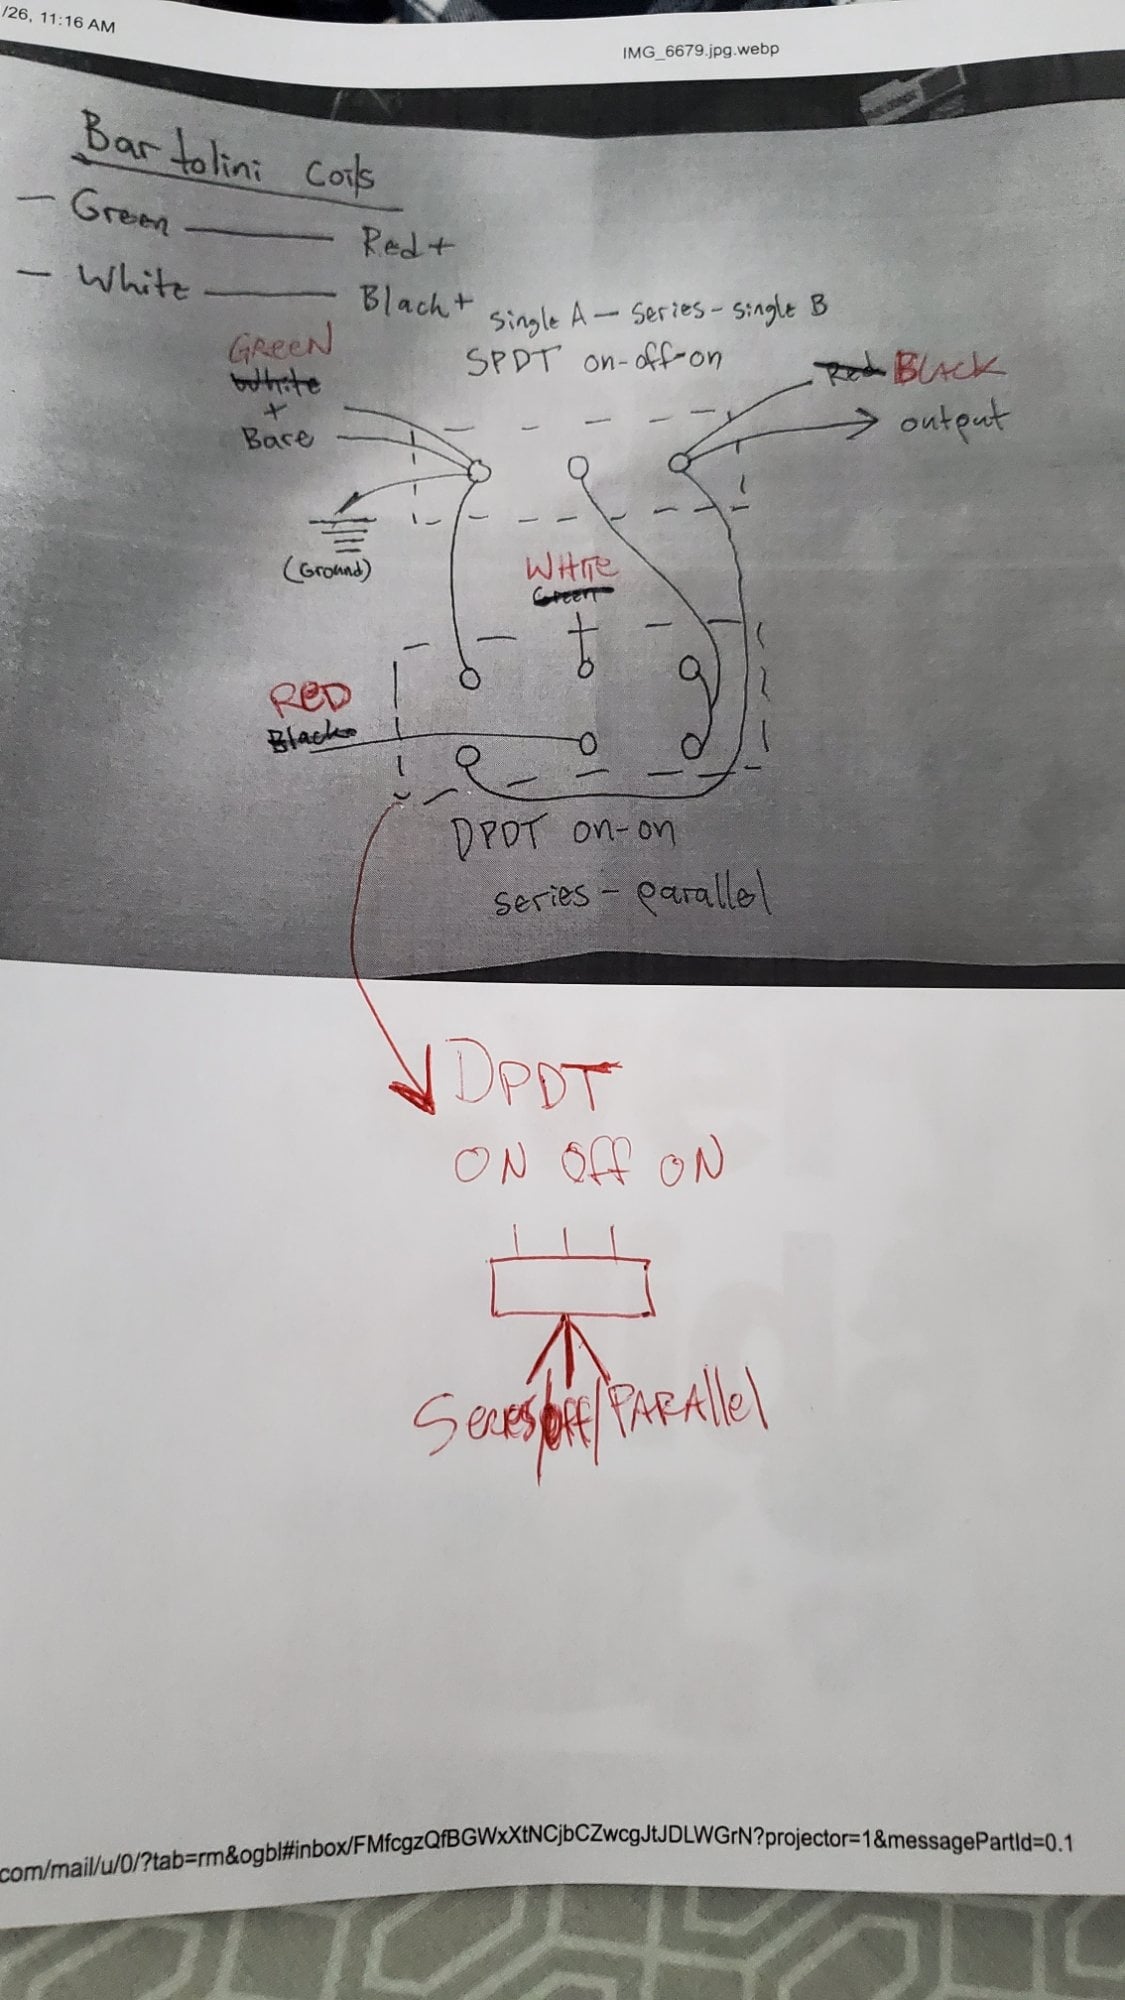 /26, 11:16 AM
IMG_6679.jpg.webp
Bartolini Coils
— Green —— Red+
— White —— Black+
single A — series - single B
SPDT on-off-on
GREEN
White
+
Bare
Red BLACK
output
(Ground)
WHITE
Green
RED
Black
DPDT on-on
series - parallel
DPDT
ON Off ON
Series/off/PARAllel
com/mail/u/0/?tab=rm&ogbl#inbox/FMfcgzQfBGWxXtNCjbCZwcgJtJDLWGrN?projector=1&messagePartId=0.1